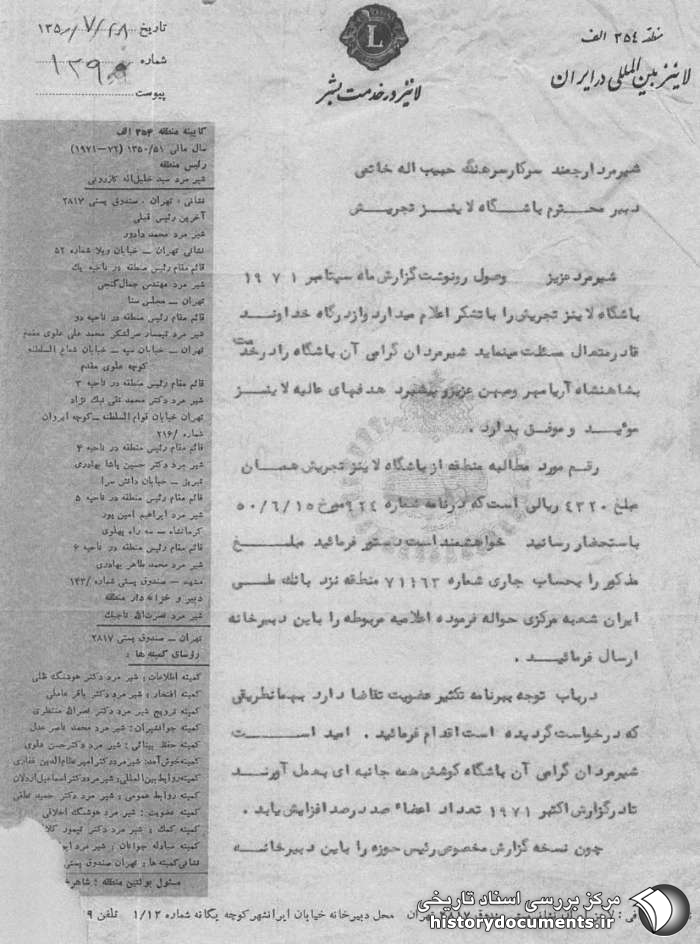 منطقه ۳۵۴ الف
لاینز بین المللی در ایران
L
لاینز در خدمت بشر
تاریخ ۱۳۵۰/۷/۲۸
شماره ۱۳۹۰
پیوست
کابینه منطقه ۳۵۴ الف
سال مالی ۱۳۵۰/۵۱ (۷۲–۱۹۷۱)
رئیس منطقه
شیر مرد سید خلیل‌اله کازرونی
نشانی : تهران . صندوق پستی ۲۸۱۷
آخرین رئیس قبلی
شیر مرد محمد دادور
نشانی تهران – خیابان ویلا شماره ۵۲
قائم مقام رئیس منطقه در ناحیه یک
شیر مرد مهندس جمال گنجی
تهران – مجلس سنا
قائم مقام رئیس منطقه در ناحیه دو
شیر مرد تیمسار سرلشکر محمد علی علوی مقدم
تهران – خیابان سپه – خیابان شعاع السلطنه
کوچه علوی مقدم
قائم مقام رئیس منطقه در ناحیه ۳
شیر مرد دکتر محمد تقی نیک نژاد
تهران خیابان قوام السلطنه – کوچه ایروان
شماره ۲۱۶/
قائم مقام رئیس منطقه در ناحیه ۴
شیر مرد دکتر حسین پاشا بهادری
تبریز – خیابان دانش سرا
قائم مقام رئیس منطقه در ناحیه ۵
شیر مرد ابراهیم امین پور
کرمانشاه – سه راه پهلوی
قائم مقام رئیس منطقه در ناحیه ۶
شیر مرد محمد طاهر بهادری
مشهد – صندوق پستی شماره ۱۴۳/
دبیر و خزانه دار منطقه
شیر مرد نصرت‌اله تاجیک
تهران – صندوق پستی ۲۸۱۷
رؤسای کمیته ها :
کمیته اطلاعات : شیر مرد دکتر هوشنگ ظلی
کمیته افتخار : شیر مرد دکتر باقر عاملی
کمیته ترویج شیر مرد دکتر نصراله منتظری
کمیته جوانشیران : شیر مرد محمد ناصر عدل
کمیته حفظ بینائی : شیر مرد دکتر حسن علوی
کمیته خوش‌آمد: شیرمرد دکتر امیر نظام‌الدین غفاری
کمیته روابط بین‌المللی: شیر مرد دکتر اسماعیل اردلان
کمیته روابط عمومی : شیر مرد دکتر حمید نطقی
کمیته عضویت : شیر مرد هوشنگ اجلالی
کمیته کمک : شیر مرد دکتر تیمور
کمیته مبادله جوانان : شیر مرد
نشانی کمیته ها : تهران صندوق پستی
مسئول بولتین منطقه :
شیرمرد ارجمند سرکار سرهنگ حبیب اله خاتمی
دبیر محترم باشگاه لاینز تجریش
شیرمرد عزیز وصول رونوشت گزارش ماه سپتامبر ۱۹۷۱
باشگاه لاینز تجریش را با تشکر اعلام میدارد و از درگاه خداوند
قادر متعال مسئلت مینماید شیرمردان گرامی آن باشگاه را در خدمت
بشاهنشاه آریامهر و میهن عزیز و پیشبرد هدفهای عالیه لاینز
موئید و موفق بدارد .
رقم مورد مطالبه منطقه از باشگاه لاینز تجریش همان
مبلغ ۴۳۲۰ ریالی است که در نامه شماره ۹۲۴ مورخ ۵۰/۶/۱۵
باستحضار رسانید خواهشمند است دستور فرمائید مبلغ
مذکور را بحساب جاری شماره ۷۱۱۶۳ منطقه نزد بانک ملی
ایران شعبه مرکزی حواله فرموده اعلامیه مربوطه را باین دبیرخانه
ارسال فرمائید .
درباب توجه ببرنامه تکثیر عضویت تقاضا دارد بهمانطریقی
که درخواست گردیده است اقدام فرمائید . امید است
شیرمردان گرامی آن باشگاه کوشش همه جانبه ای بعمل آورند
تا در گزارش اکتبر ۱۹۷۱ تعداد اعضاء صد درصد افزایش یابد .
چون نسخه گزارش مخصوص رئیس حوزه را باین دبیرخانه
صندوق ۲۸۱۷ تهران محل دبیرخانه خیابان ایرانشهر کوچه یگانه شماره ۱/۱۲ تلفن
مرکز بررسی اسناد تاریخی
historydocuments.ir